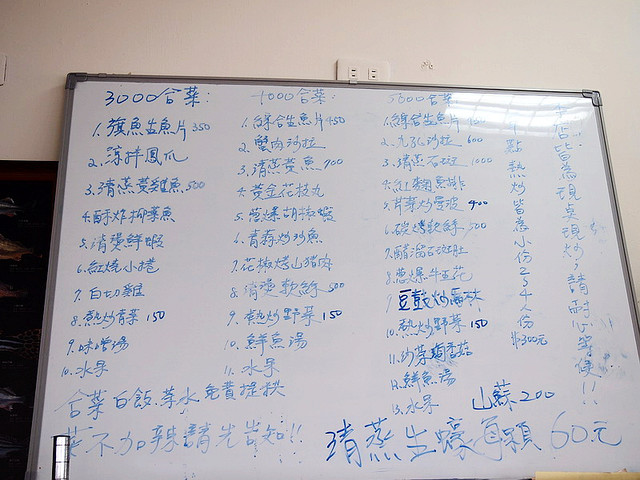 3000合菜:
1.旗魚生魚片 350
2.涼拌鳳爪
3.清蒸黃雞魚 500
4.酥炸柳葉魚
5.清燙鮮蝦
6.紅燒小捲
7.白切雞
8.熱炒青菜 150
9.味噌湯
10.水果
4000合菜:
1.綜合生魚片 450
2.蟹肉沙拉
3.清蒸黃魚 700
4.黃金花枝丸
5.蔥爆胡椒蝦
6.青蒜炒沙魚
7.花椒烤山豬肉
8.清燙軟絲 500
9.熱炒野菜 150
10.鮮魚湯
11.水果
5000合菜
1.綜合生魚片
2.九孔沙拉 600
3.清蒸石斑 1000
4.紅麴魚排
5.芹菜炒
6.碳烤軟絲 500
7.醋溜石斑肚
8.蔥爆牛豆花
9.豆鼓炒
10.熱炒野菜 150
11.炒
12.鮮魚湯
13.水果
山蘇 200
本店皆為現點現炒,請耐心等候!!
單點熱炒皆為小份2 3 4人份 $300元
合菜白飯.茶水免費提供
菜不加辣請先告知!!
清蒸生蠔每顆60元